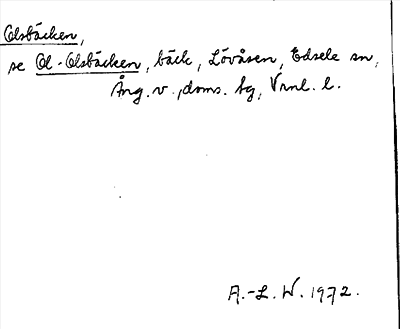 Olsbäcken,
se Ol-Olsbäcken, bäck, Lövåsen, Edsele sn,
Ång. v., doms. bg, Vrnl. l.
A.-L. W. 1972.